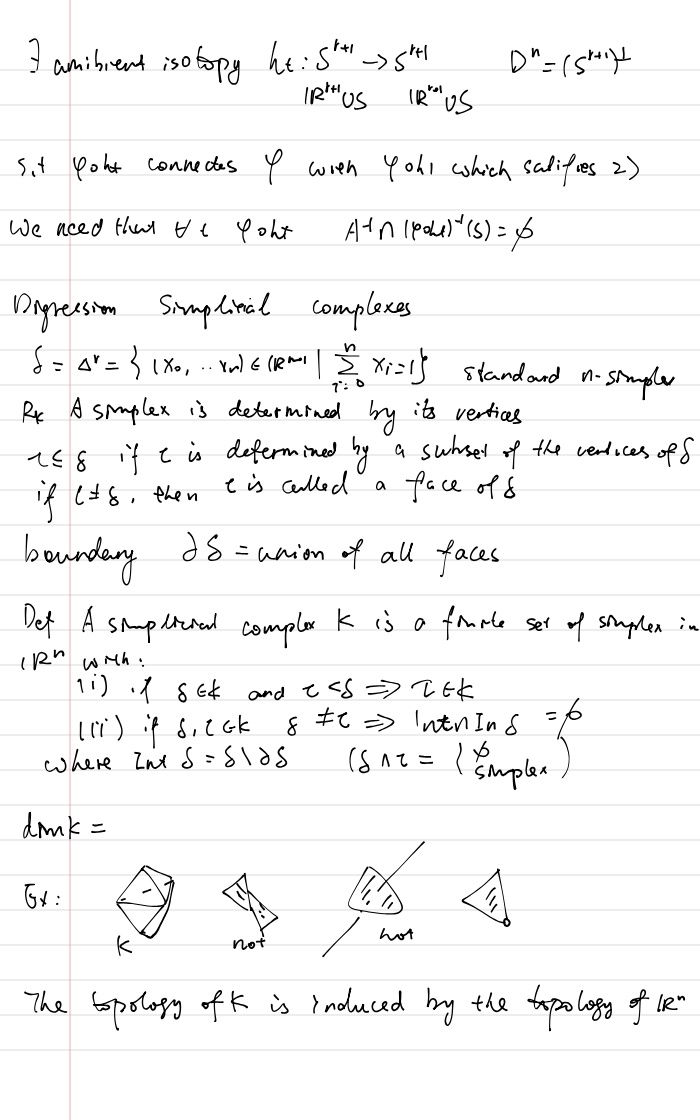 ∃ amibient isotopy ht : S^{k+1} → S^{k+1} D^n = (S^{k+1})^⊥
ℝ^{k+1} ∪ S ℝ^{k+1} ∪ S
s.t φ∘ht connectes φ with φ∘h1 which satifies 2)
We need that ∀ t φ∘ht A^{-1} ∩ (φ∘ht)^{-1}(S) = ∅
Digression Simplicial complexes
δ = Δ^n = { (x0, .. xn) ∈ ℝ^{n+1} | Σ_{i=0}^{n} xi = 1 } standard n-simplex
Rk A simplex is determined by its vertices
τ ≤ δ if τ is determined by a subset of the vertices of δ
if τ ≠ δ, then τ is called a face of δ
boundary ∂δ = union of all faces
Def A simplicial complex K is a finite set of simplex in
ℝ^n with:
(i) if δ ∈ K and τ < δ ⇒ τ ∈ K
(ii) if δ, τ ∈ K δ ≠ τ ⇒ Int τ ∩ Int δ = ∅
where Int δ = δ \ ∂δ (δ ∩ τ = { ∅
simplex )
dim K =
Ex:
K not not
The topology of K is induced by the topology of ℝ^n